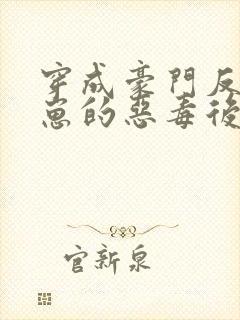 穿成豪門反
崽的惡毒後
官新泉